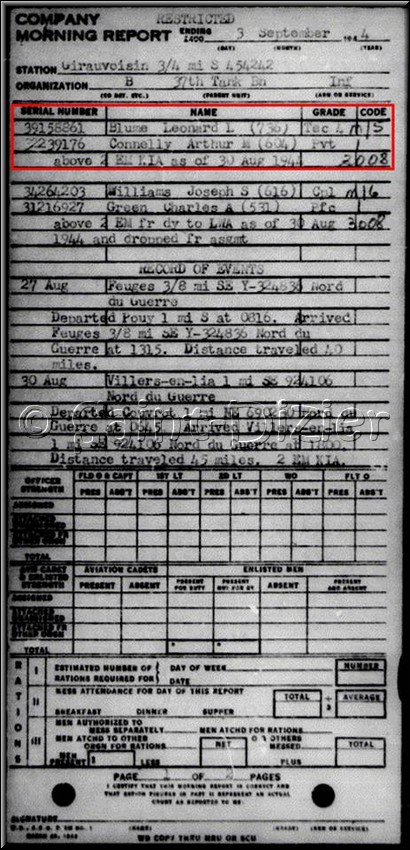 COMPANY RESTRICTED
MORNING REPORT ENDING 2400 3 September 1944
(DAY) (MONTH) (YEAR)
STATION Girauvoisin 3/4 mi S 454242
ORGANIZATION B 37th Tank Bn Inf
(CO DET. ETC.) (PARENT UNIT) (ARM OR SERVICE)
SERIAL NUMBER NAME GRADE CODE
39158861 Blume Leonard L (736) Tec 4 m 5
32239176 Connelly Arthur M (604) Pvt
above 2 EM KIA as of 30 Aug 1944 2008
34264203 Williams Joseph S (616) Cpl m 6
31216927 Green Charles A (531) Pfc
above 2 EM fr dy to LWA as of 30 Aug 3008
1944 and dropped fr assgmt
RECORD OF EVENTS
27 Aug Feuges 3/8 mi SE Y-324836 Nord
du Guerre
Departed Pouy 1 mi S at 0816. Arrived
Feuges 3/8 mi SE Y-324836 Nord du
Guerre at 1315. Distance traveled 40
miles.
30 Aug Villers-en-lia 1 mi SE 924106
Nord du Guerre
Departed Couvrot 1 mi NE 690230 Nord du
Guerre at 0645. Arrived Villers-en-lia
1 mi SE 924106 Nord du Guerre at
Distance traveled 45 miles. 2 EM KIA.
OFFICER STRENGTH FLD O & CAPT 1ST LT 2D LT WO FLT O
PRES ABS'T PRES ABS'T PRES ABS'T PRES ABS'T PRES ABS'T
ASSIGNED
TOTAL
AVN CADET & ENLISTED STRENGTH AVIATION CADETS ENLISTED MEN
PRESENT ABSENT PRESENT FOR DUTY PRESENT NOT FOR DY ABSENT PRESENT AND ABSENT
ASSIGNED
ATTACHED UNASSIGNED
ATTACHED FR OTHER ORGN
TOTAL
RATIONS
I ESTIMATED NUMBER OF RATIONS REQUIRED FOR DAY OF WEEK DATE NUMBER
II MESS ATTENDANCE FOR DAY OF THIS REPORT TOTAL ÷ 3 AVERAGE
BREAKFAST DINNER SUPPER
III MEN AUTHORIZED TO MESS SEPARATELY MEN ATCHD FOR RATIONS
MEN ATCHD TO OTHER ORGN FOR RATIONS NET OTHERS MESSED TOTAL
MEN PRESENT LESS PLUS
PAGE 1 OF 2 PAGES
I CERTIFY THAT THIS MORNING REPORT IS CORRECT AND
THAT
SIGNATURE
(NAME) (GRADE) (ARM OR SERVICE)
WD COPY THRU MRU OR SCU